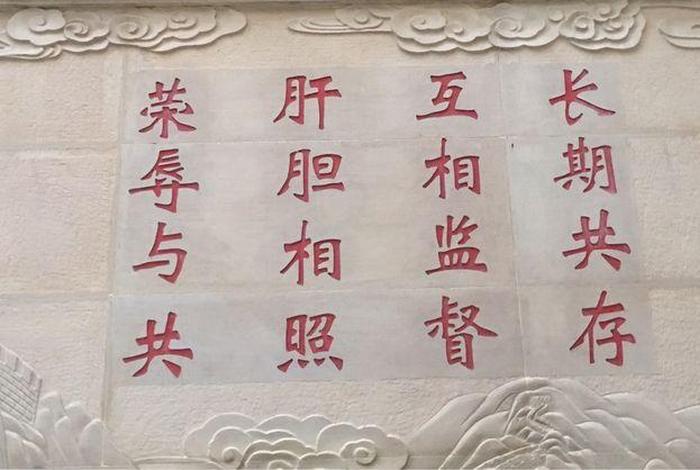 长期共存
互相监督
肝胆相照
荣辱与共